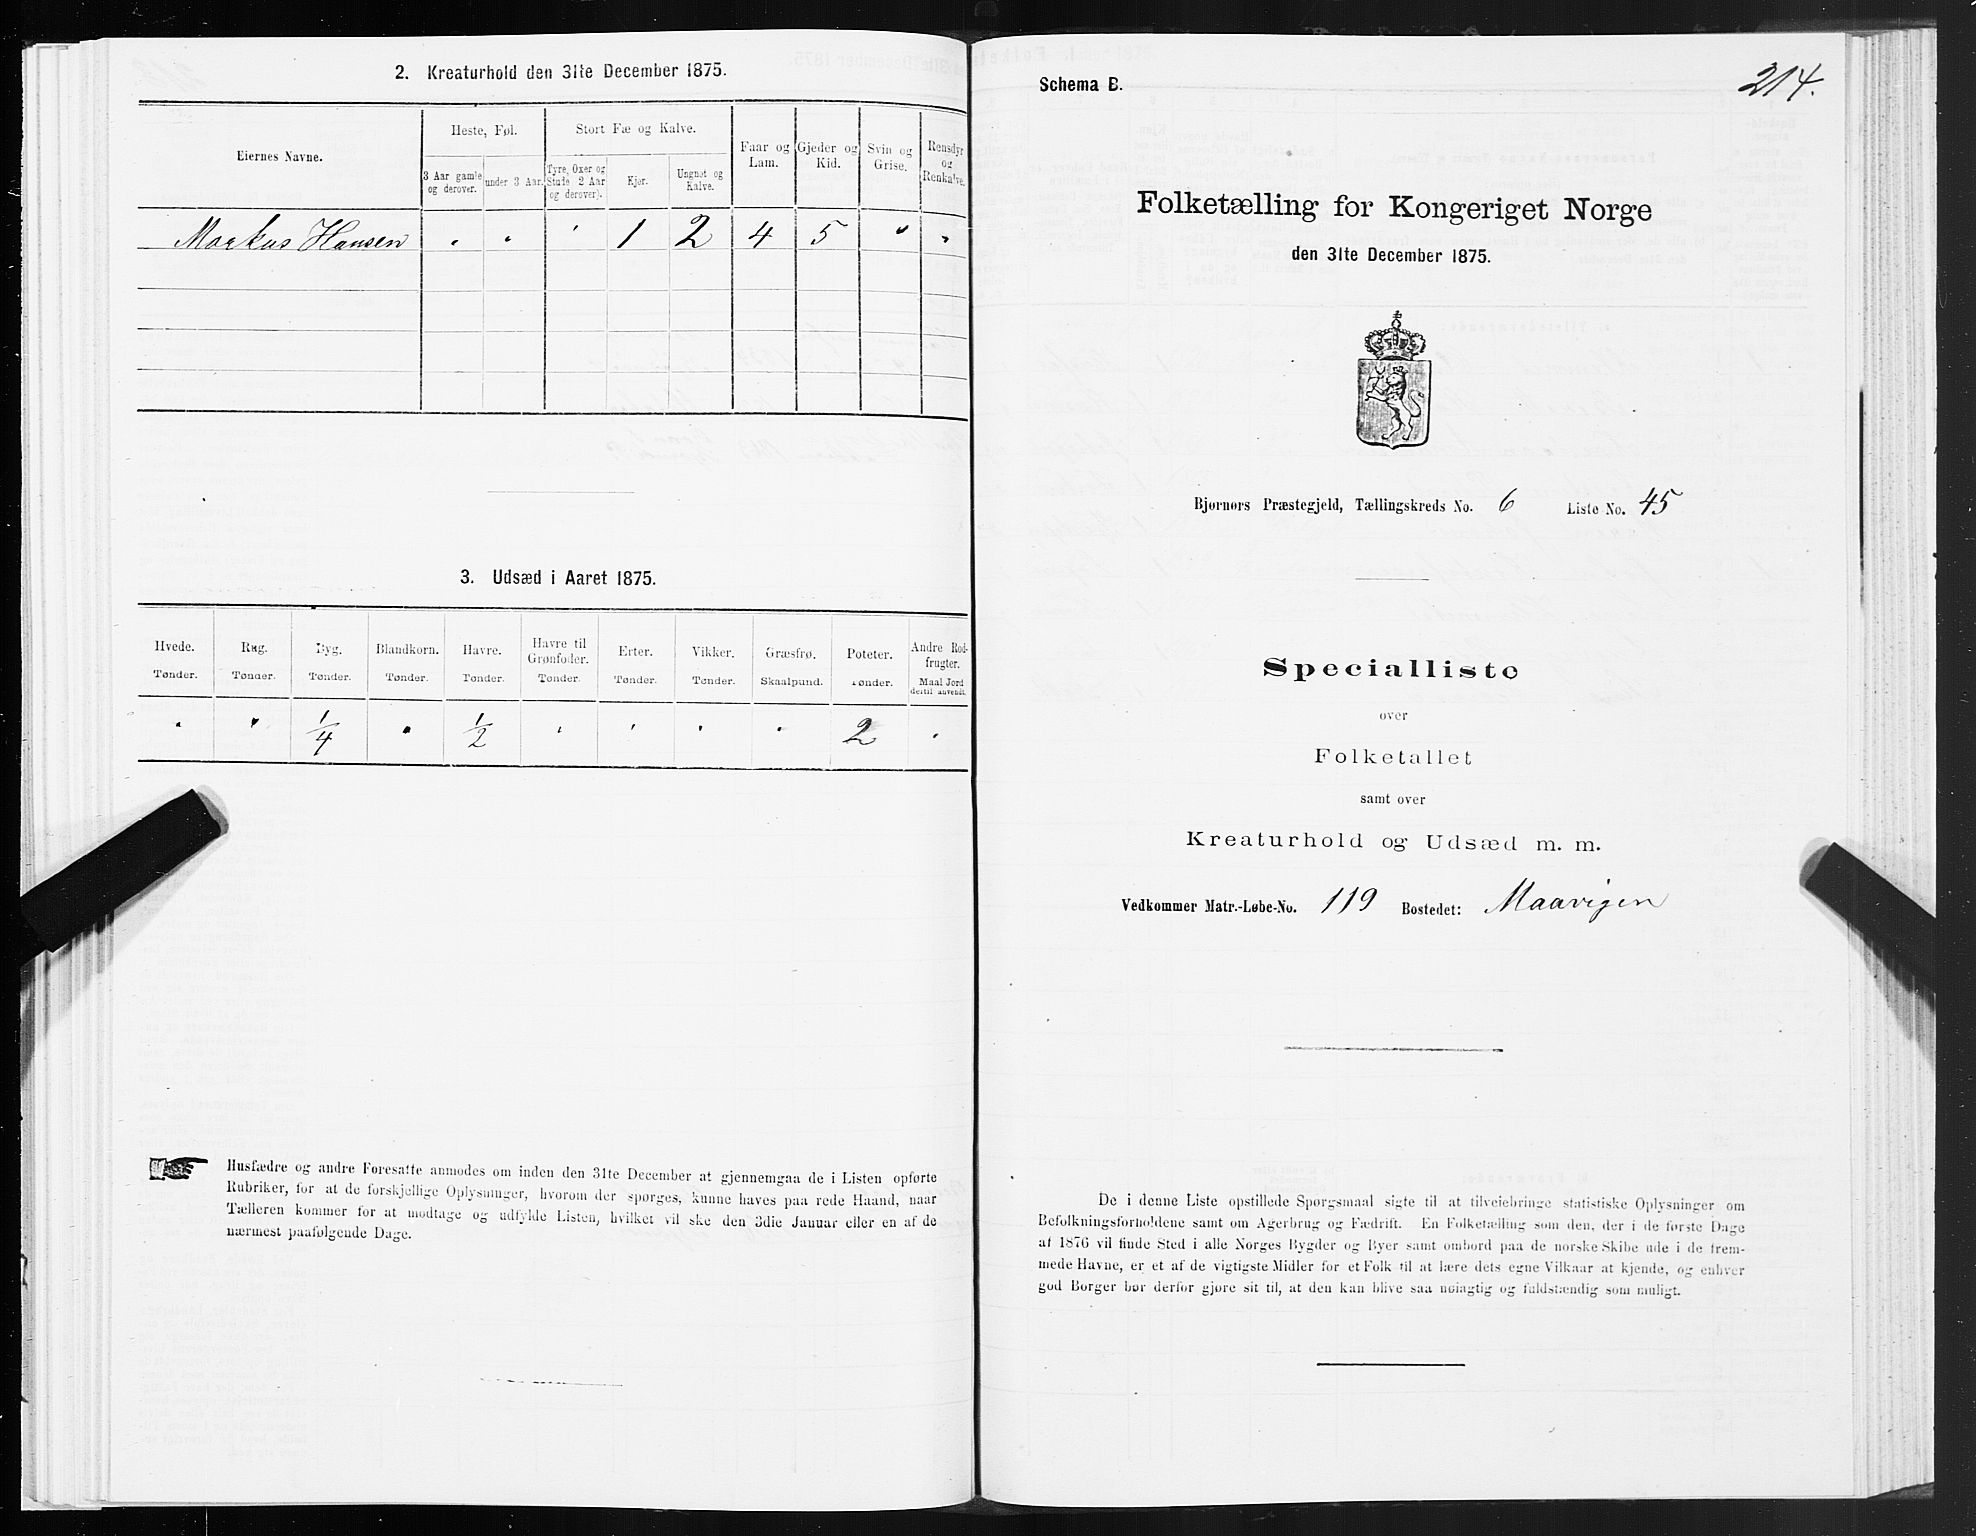 2. Kreaturhold den 31te December 1875.
Eiernes Navne.
Heste, Føl.
Stort Fæ og Kalve.
Faar og Lam.
Gjeder og Kid.
Svin og Grise.
Rensdyr og Renkalve.
3 Aar gamle og derover.
under 3 Aar.
Tyre, Oxer og Stude 2 Aar og derover).
Kjør.
Ungnøt og Kalve.
Markus Hansen " " " 1 2 4 5 " "
3. Udsæd i Aaret 1875.
Hvede. Rug. Byg. Blandkorn. Havre. Havre til Grønfoder. Erter. Vikker. Græsfrø. Poteter. Andre Rodfrugter.
Tønder. Tønder. Tønder. Tønder. Tønder. Tønder. Tønder. Tønder. Skaalpund. Tønder. Maal Jord dertil anvendt.
" " 1/4 " 1/2 " " " " 2 "
Husfædre og andre Foresatte anmodes om inden den 31te December at gjennemgaa de i Listen opførte
Rubriker, for at de forskjellige Oplysninger, hvorom der spørges, kunne haves paa rede Haand, naar
Tælleren kommer for at modtage og udfylde Listen, hvilket vil ske den 3die Januar eller en af de
nærmest paafølgende Dage.
Schema B.
214.
Folketælling for Kongeriget Norge
den 31te December 1875.
Bjørnørs Præstegjeld, Tællingskreds No. 6 Liste No. 45
Specialliste
over
Folketallet
samt over
Kreaturhold og Udsæd m. m.
Vedkommer Matr.-Løbe-No. 119 Bostedet: Maavigen
De i denne Liste opstillede Spørgsmaal sigte til at tilveiebringe statistiske Oplysninger om
Befolkningsforholdene samt om Agerbrug og Fædrift. En Folketælling som den, der i de første Dage
af 1876 vil finde Sted i alle Norges Bygder og Byer samt ombord paa de norske Skibe ude i de frem-
mede Havne, er et af de vigtigste Midler for et Folk til at lære dets egne Vilkaar at kjende, og enhver
god Borger bør derfor gjøre sit til, at den kan blive saa nøiagtig og fuldstændig som muligt.